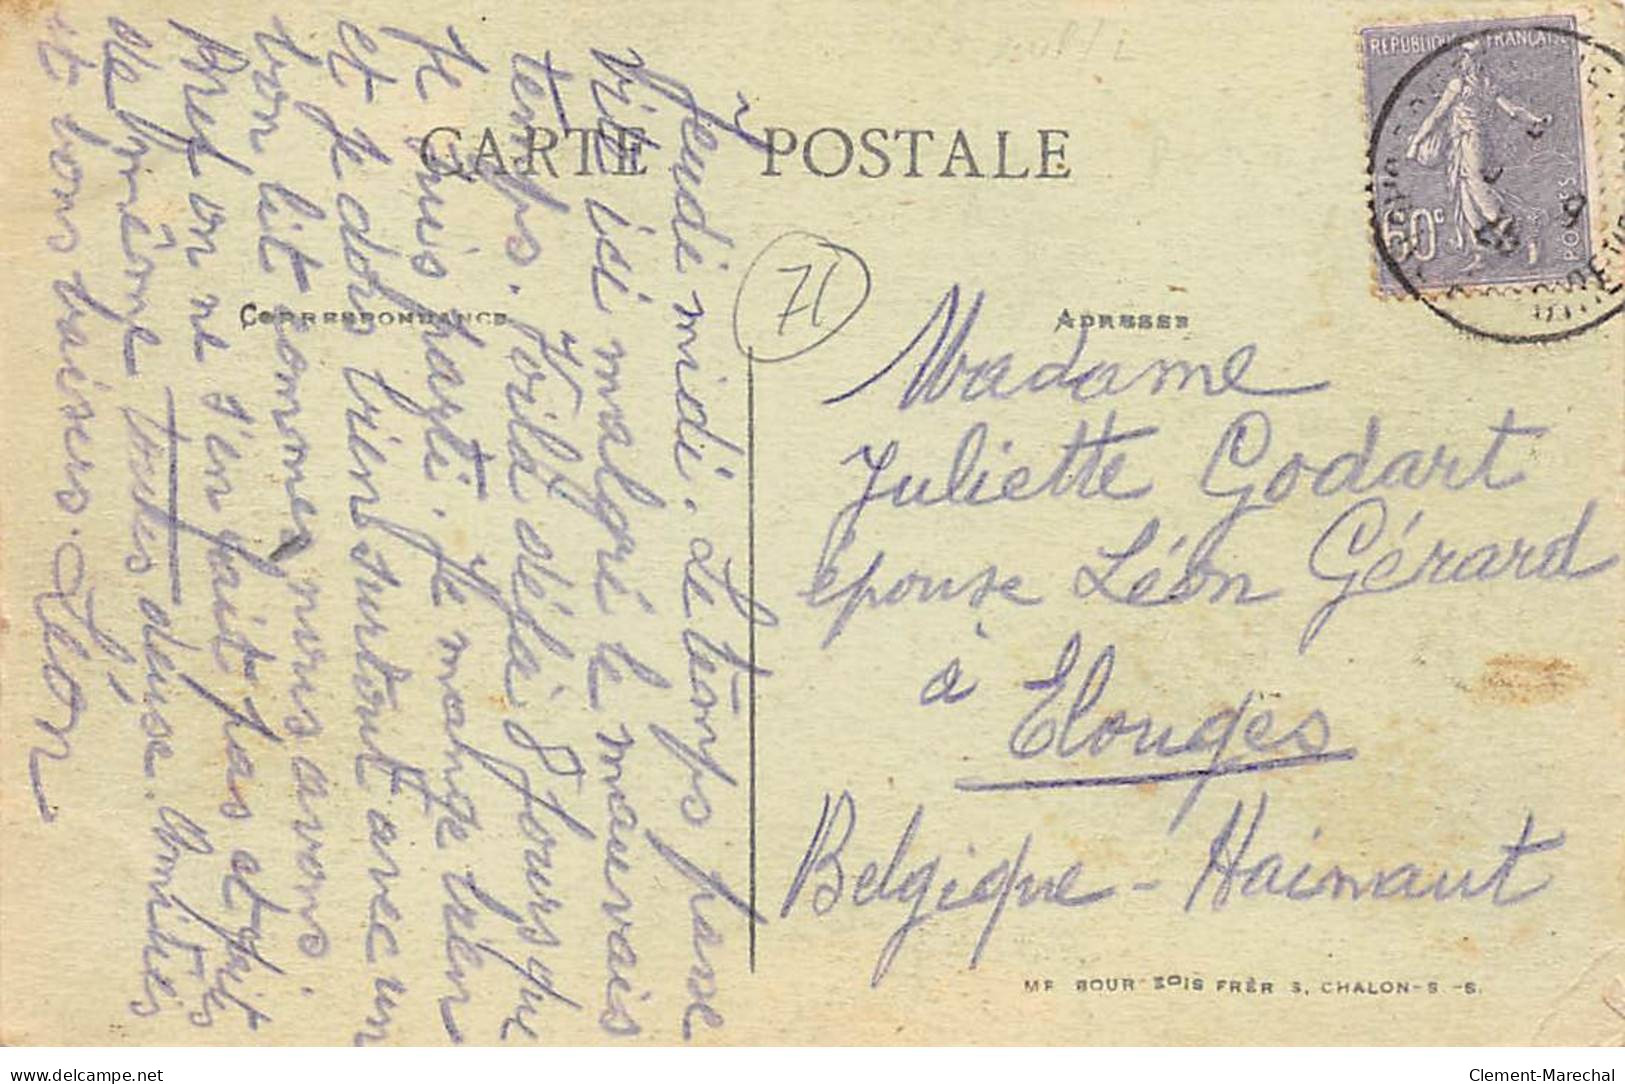 CARTE POSTALE
CORRESPONDANCE
ADRESSE
71
REPUBLIQUE FRANÇAISE
60c
POSTES
Jeudi midi. Le temps passe
vite ici malgré le mauvais
temps. Voilà déjà 8 jours que
je suis parti. Je mange bien
et je dors bien surtout avec un
bon lit comme nous avons.
Bref on ne s'en fait pas et puis
de même toutes deuse. Amitiés
et bons baisers. Léon
Madame
Juliette Godart
épouse Léon Gérard
à Elouges
Belgique - Hainaut
IMP. BOURGEOIS FRÈRES, CHALON-S.-S.
delcampe.net
Clement-Marechal